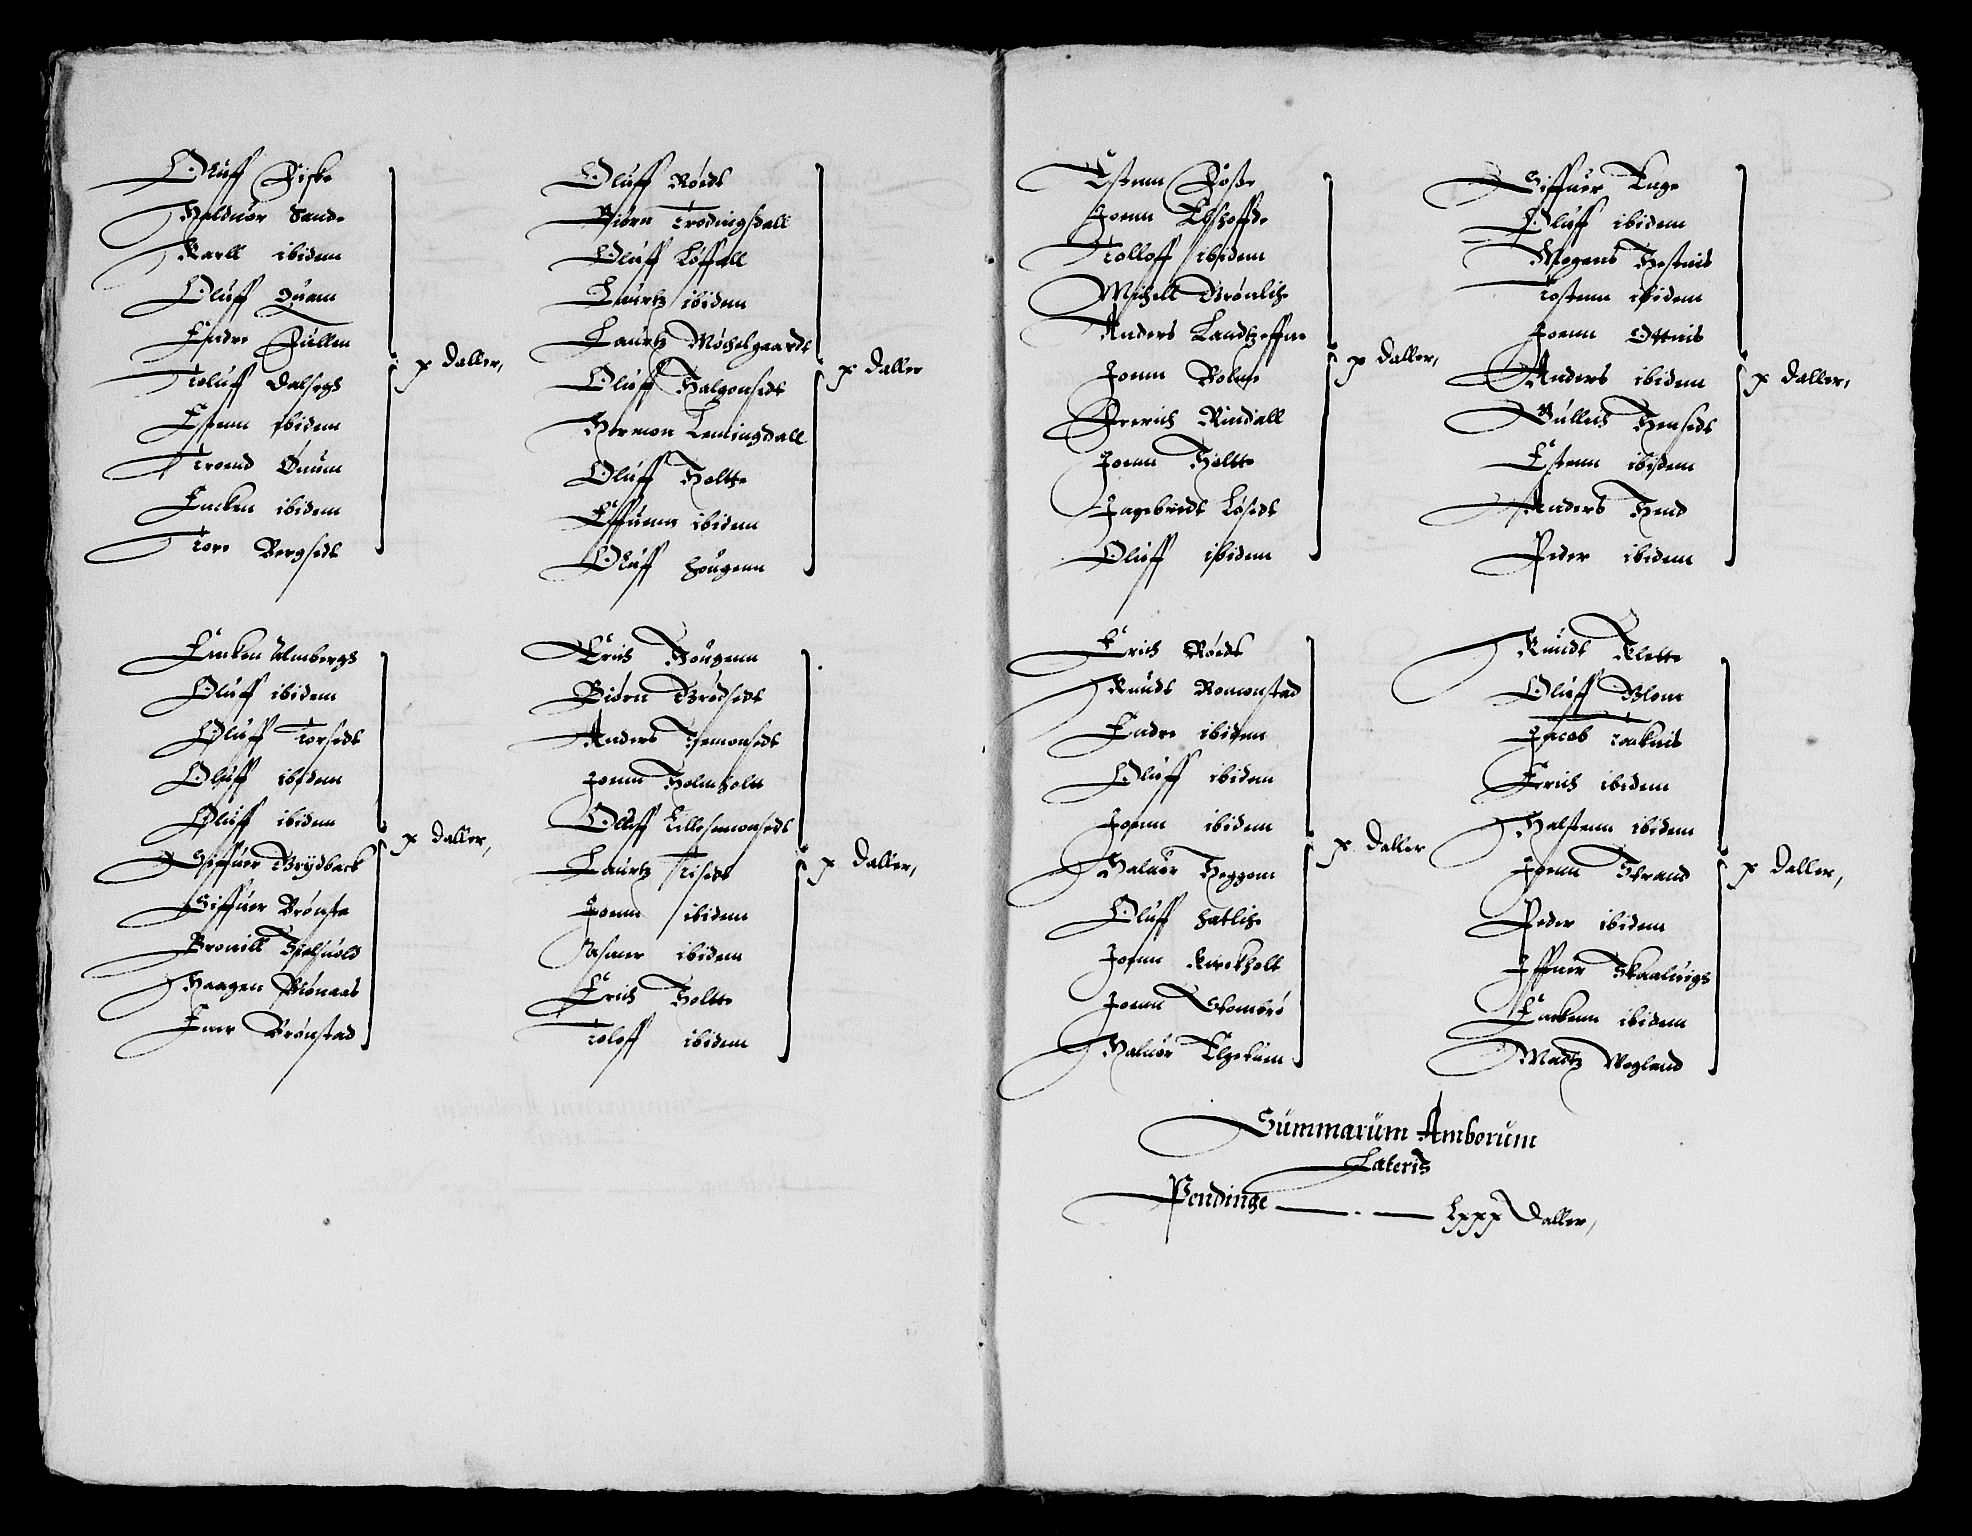 Oluff Fiske
Halduor Sande
Karll ibidem
Oluff Quam
Endre Fullen
Toluff Dalsegs
Estenn ibidem
Troend Ønum
Encken ibidem
Tore Bergsedt
x Daller,
Oluff Røedt
Biørn Trodingsdall
Oluff Løffall
Laurtz ibidem
Laurtz Møchelgaardt
Oluff Halgonsedt
Hermon Lemingdall
Oluff Holtte
Effuenn ibidem
Oluff Hougenn
x Daller
Encken Almbergs
Oluff ibidem
Oluff Torsedt
Oluff ibidem
Oluff ibidem
Siffuer Brydback
Siffuer Brønste
Bronill
Haagen Mønaas
Einer Brønstad
x Daller,
Erich Hougenn
Biørn Brødsedt
Anders Semonsedt
Joenn Holmholn
Oluff Lillesemonsedt
Laurtz Tisedt
Joenn ibidem
Asmer ibidem
Erich Holtte
Toloff ibidem
x Daller,
Estenn Føsse
Joenn
Tolloff ibidem
Michell Grønlich
Anders Landtzeffne
Joenn Volme
Frerich Rindall
Joenn Holtte
Ingebredt Løsedt
Oluff ibidem
x Daller,
Siffuer Tuge
Oluff ibidem
Mogens Hestnis
Tostenn ibidem
Joenn Ottnis
Anders ibidem
Gullich Hensedt
Estenn ibidem
Anders Hend
Peder ibidem
x Daller,
Erich Røedt
Knudt Romonstad
Endre ibidem
Oluff ibidem
Joenn ibidem
Haluor Heggom
Oluff Hatlich
Joenn Kirckholt
Joenn Stombrø
Haluor Elgetum
x Daller
Knudt Klette
Oluff Blom
Jacob Tocknis
Erich ibidem
Halstenn ibidem
Joenn Strand
Peder ibidem
Iffuer Skaaluigs
Enckenn ibidem
Madtz Wegland
x Daller,
Summarum Amborum
Lateris
Pendinge — . — Lxxx Daller,